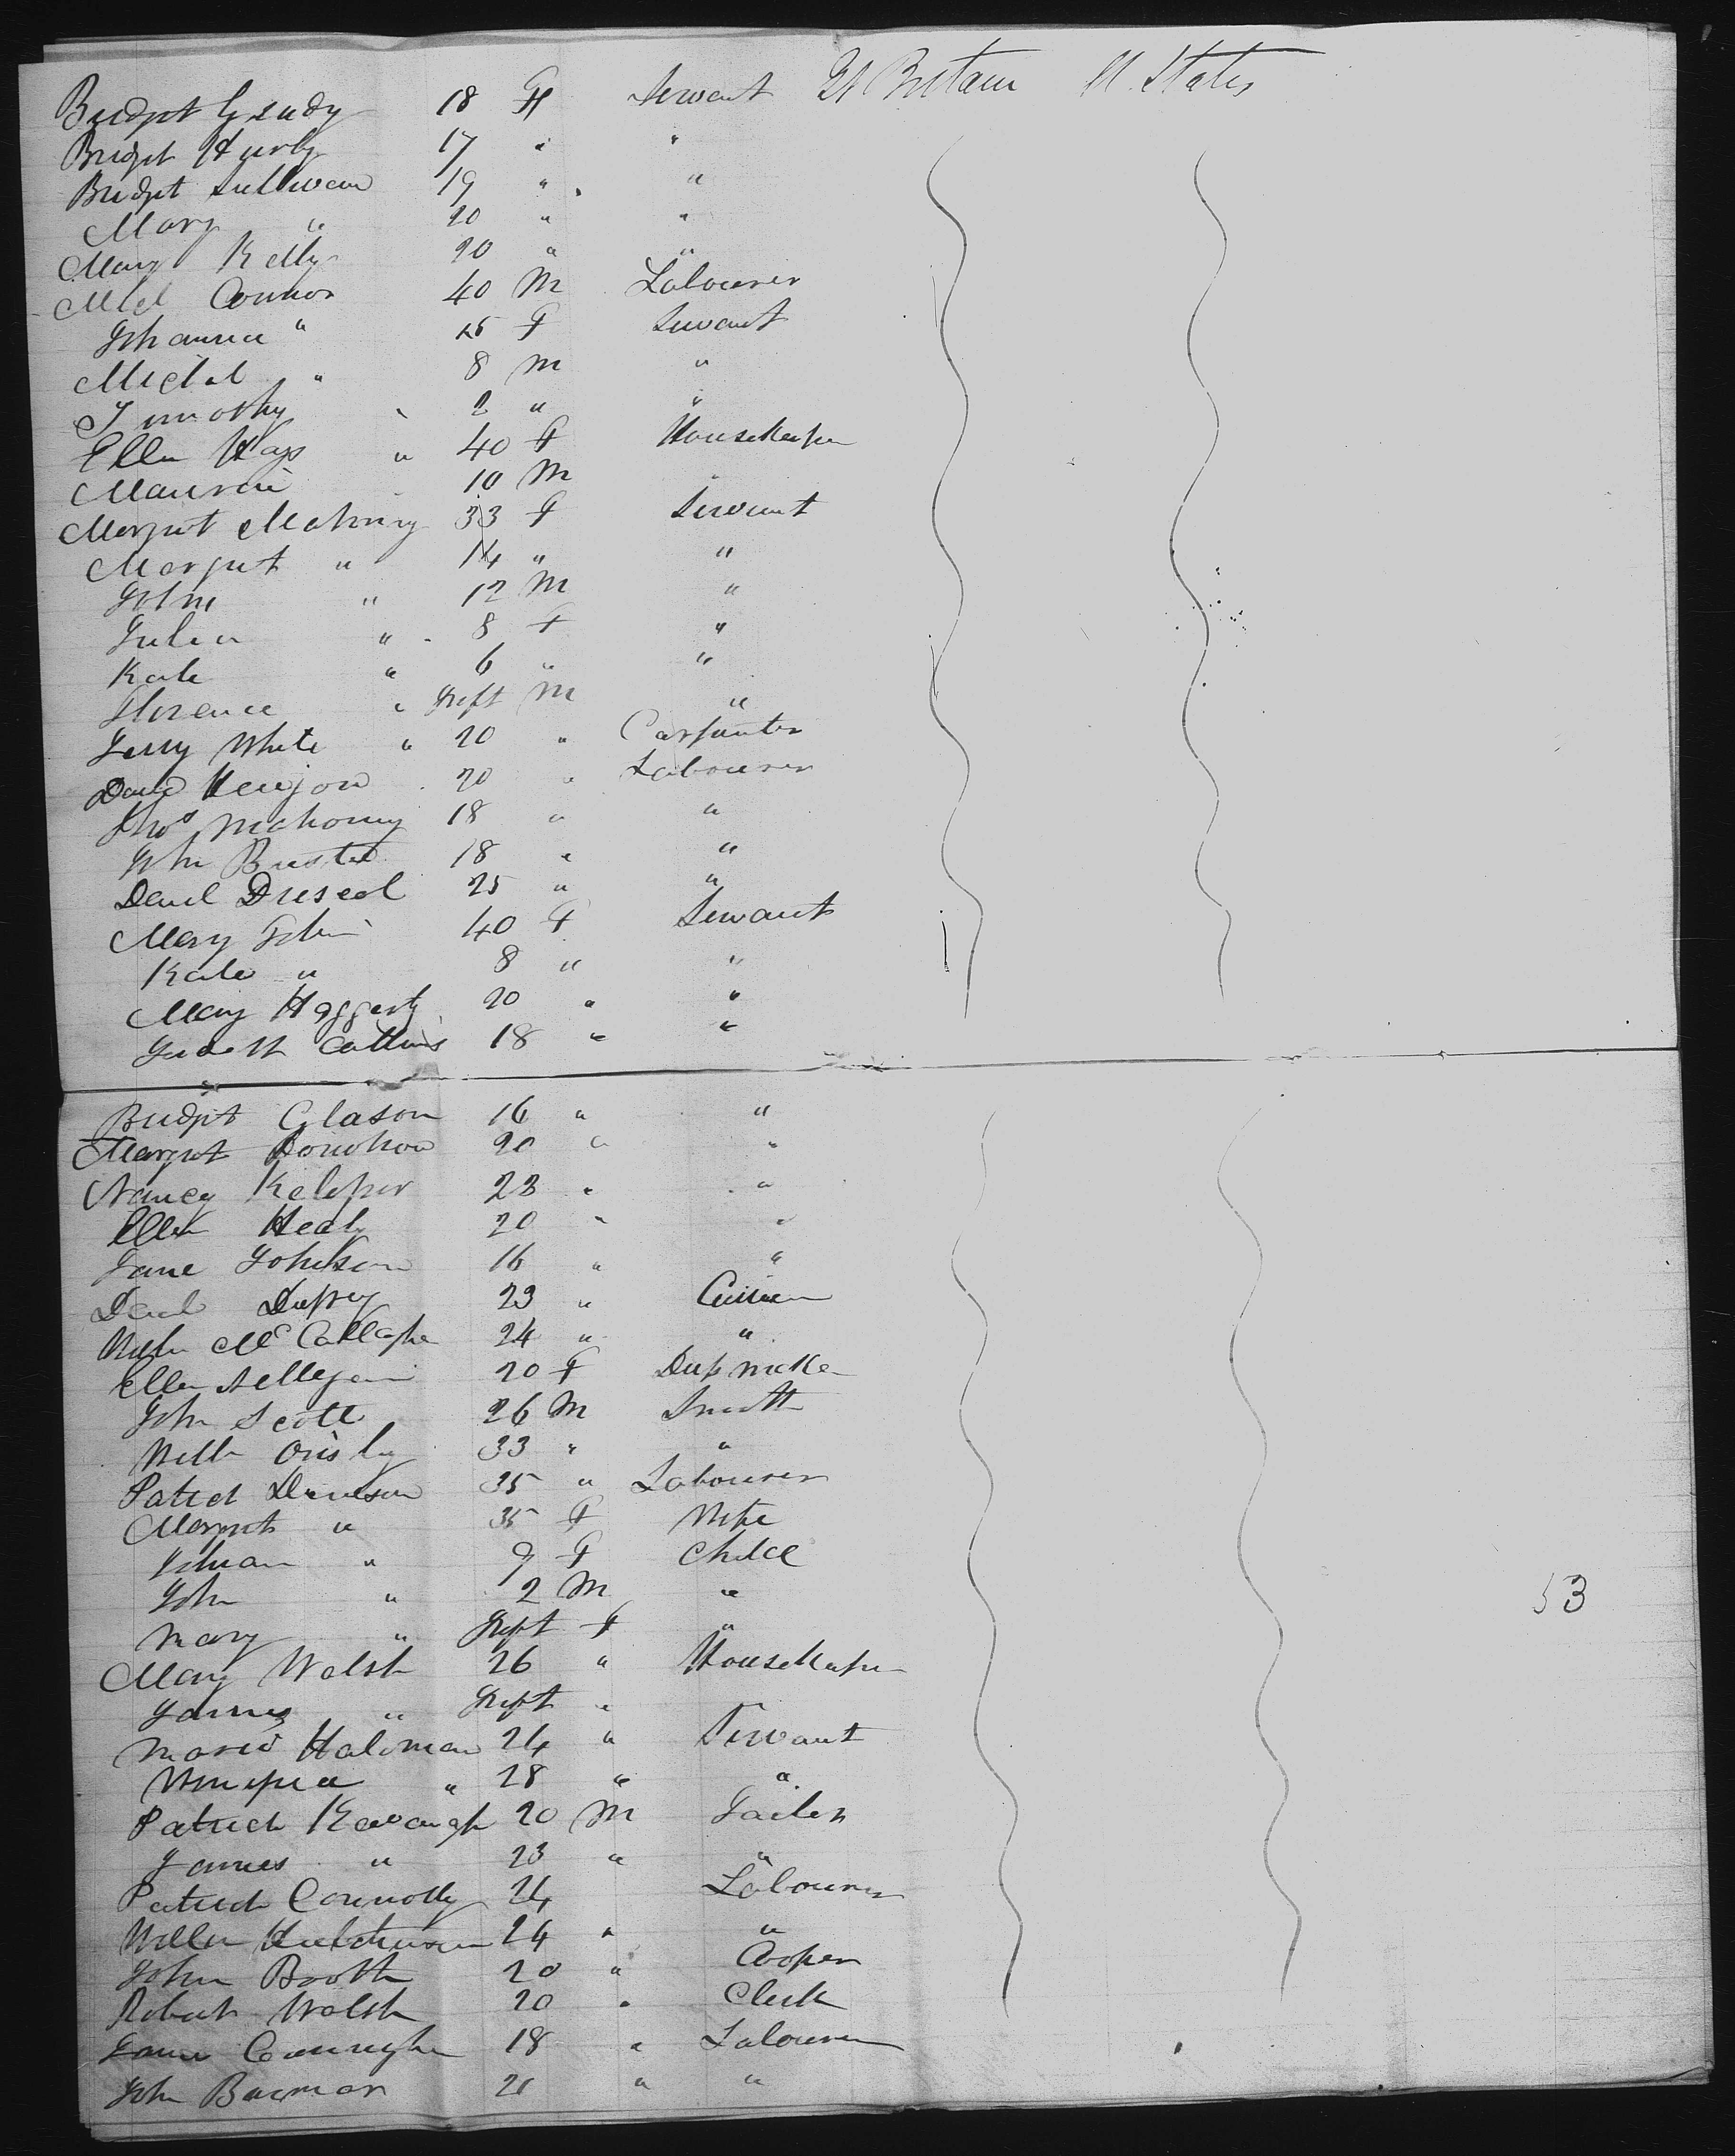 Bridget Grady 18 F Servant Gt Britain U. States
Bridget Hurly 17 " "
Bridget Sullivan 19 " "
Mary " 20 " "
Mary Kelly 20 " "
Michl Connor 40 M Labourer
Johanna " 25 F Servant
Michal " 8 M "
Timothy " 2 " "
Ellen Hays " 40 F Housekeeper
Maurice 10 M "
Margret Mahony 33 F Servant
Margret " 14 " "
John " 12 M "
Julia " 8 F "
Kate " 6 " "
Florence " Inft M "
Jerry White " 20 " Carpenter
David 20 " Labourer
Thos Mahony 18 " "
John 18 " "
Danl Driscol 25 " "
Mary 40 F Servant
Kate " 8 " "
Mary Haggerty 20 " "
Judith Collins 18 " "
Bridget Glason 16 " "
Margret Donohoe 20 " "
Nancy 23 " "
Ellen Healy 20 " "
Jane Johnson 16 " "
Danl 23 "
Willm McCallagher 24 " "
Ellen 20 F Dressmaker
John Scott 26 M Smith
Willm 33 " "
Patrick Davison 35 " Labourer
Margret " 35 F Wife
" 9 F Child
John " 2 M "
Mary " Inft F "
Mary Walsh 26 " Housekeeper
James " Inft "
Maria Haloman 24 " Servant
" 28 " "
Patrick Kavanagh 20 M Tailor
James " 23 " "
Patrick Connolly 24 Labourer
Willm Hutchinson 24 " "
John Booth 20 " Cooper
Robert Walsh 20 " Clerk
18 " Labourer
John 21 " "
53